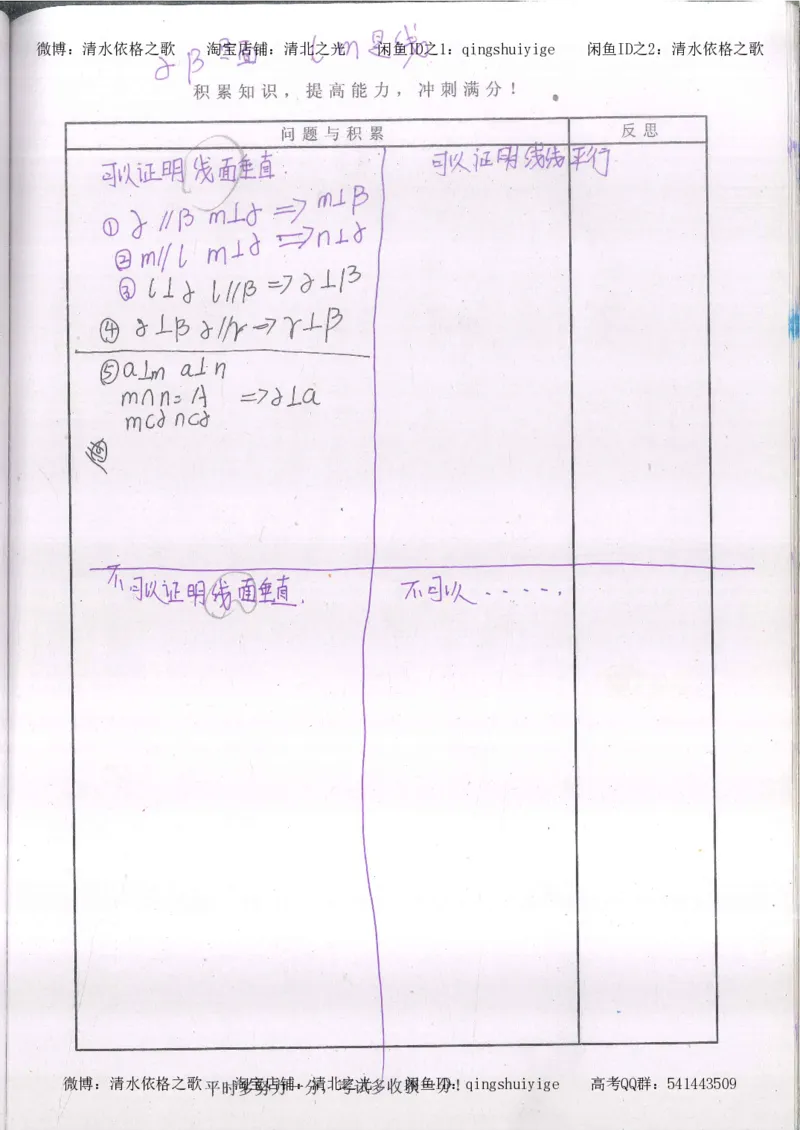 微博：清水依格之歌 淘宝店铺：清北之光 闲鱼ID之1：qingshuiyige 闲鱼ID之2：清水依格之歌
α β是面 l n是线
积累知识，提高能力，冲刺满分！
问题与积累 反思
可以证明线面垂直.
① α∥β m⊥α => m⊥β
② m∥l m⊥α => n⊥α
③ l⊥α l∥β => α⊥β
④ α⊥β α∥γ => γ⊥β
⑤ a⊥m a⊥n
m∩n=A => α⊥a
m⊂α n⊂α
可以证明线线平行.
不可以证明线面垂直.
不可以.....
微博：清水依格之歌 淘宝店铺：清北之光 闲鱼ID：qingshuiyige 高考QQ群：541443509
平时多努力一分，考试多收获一分！